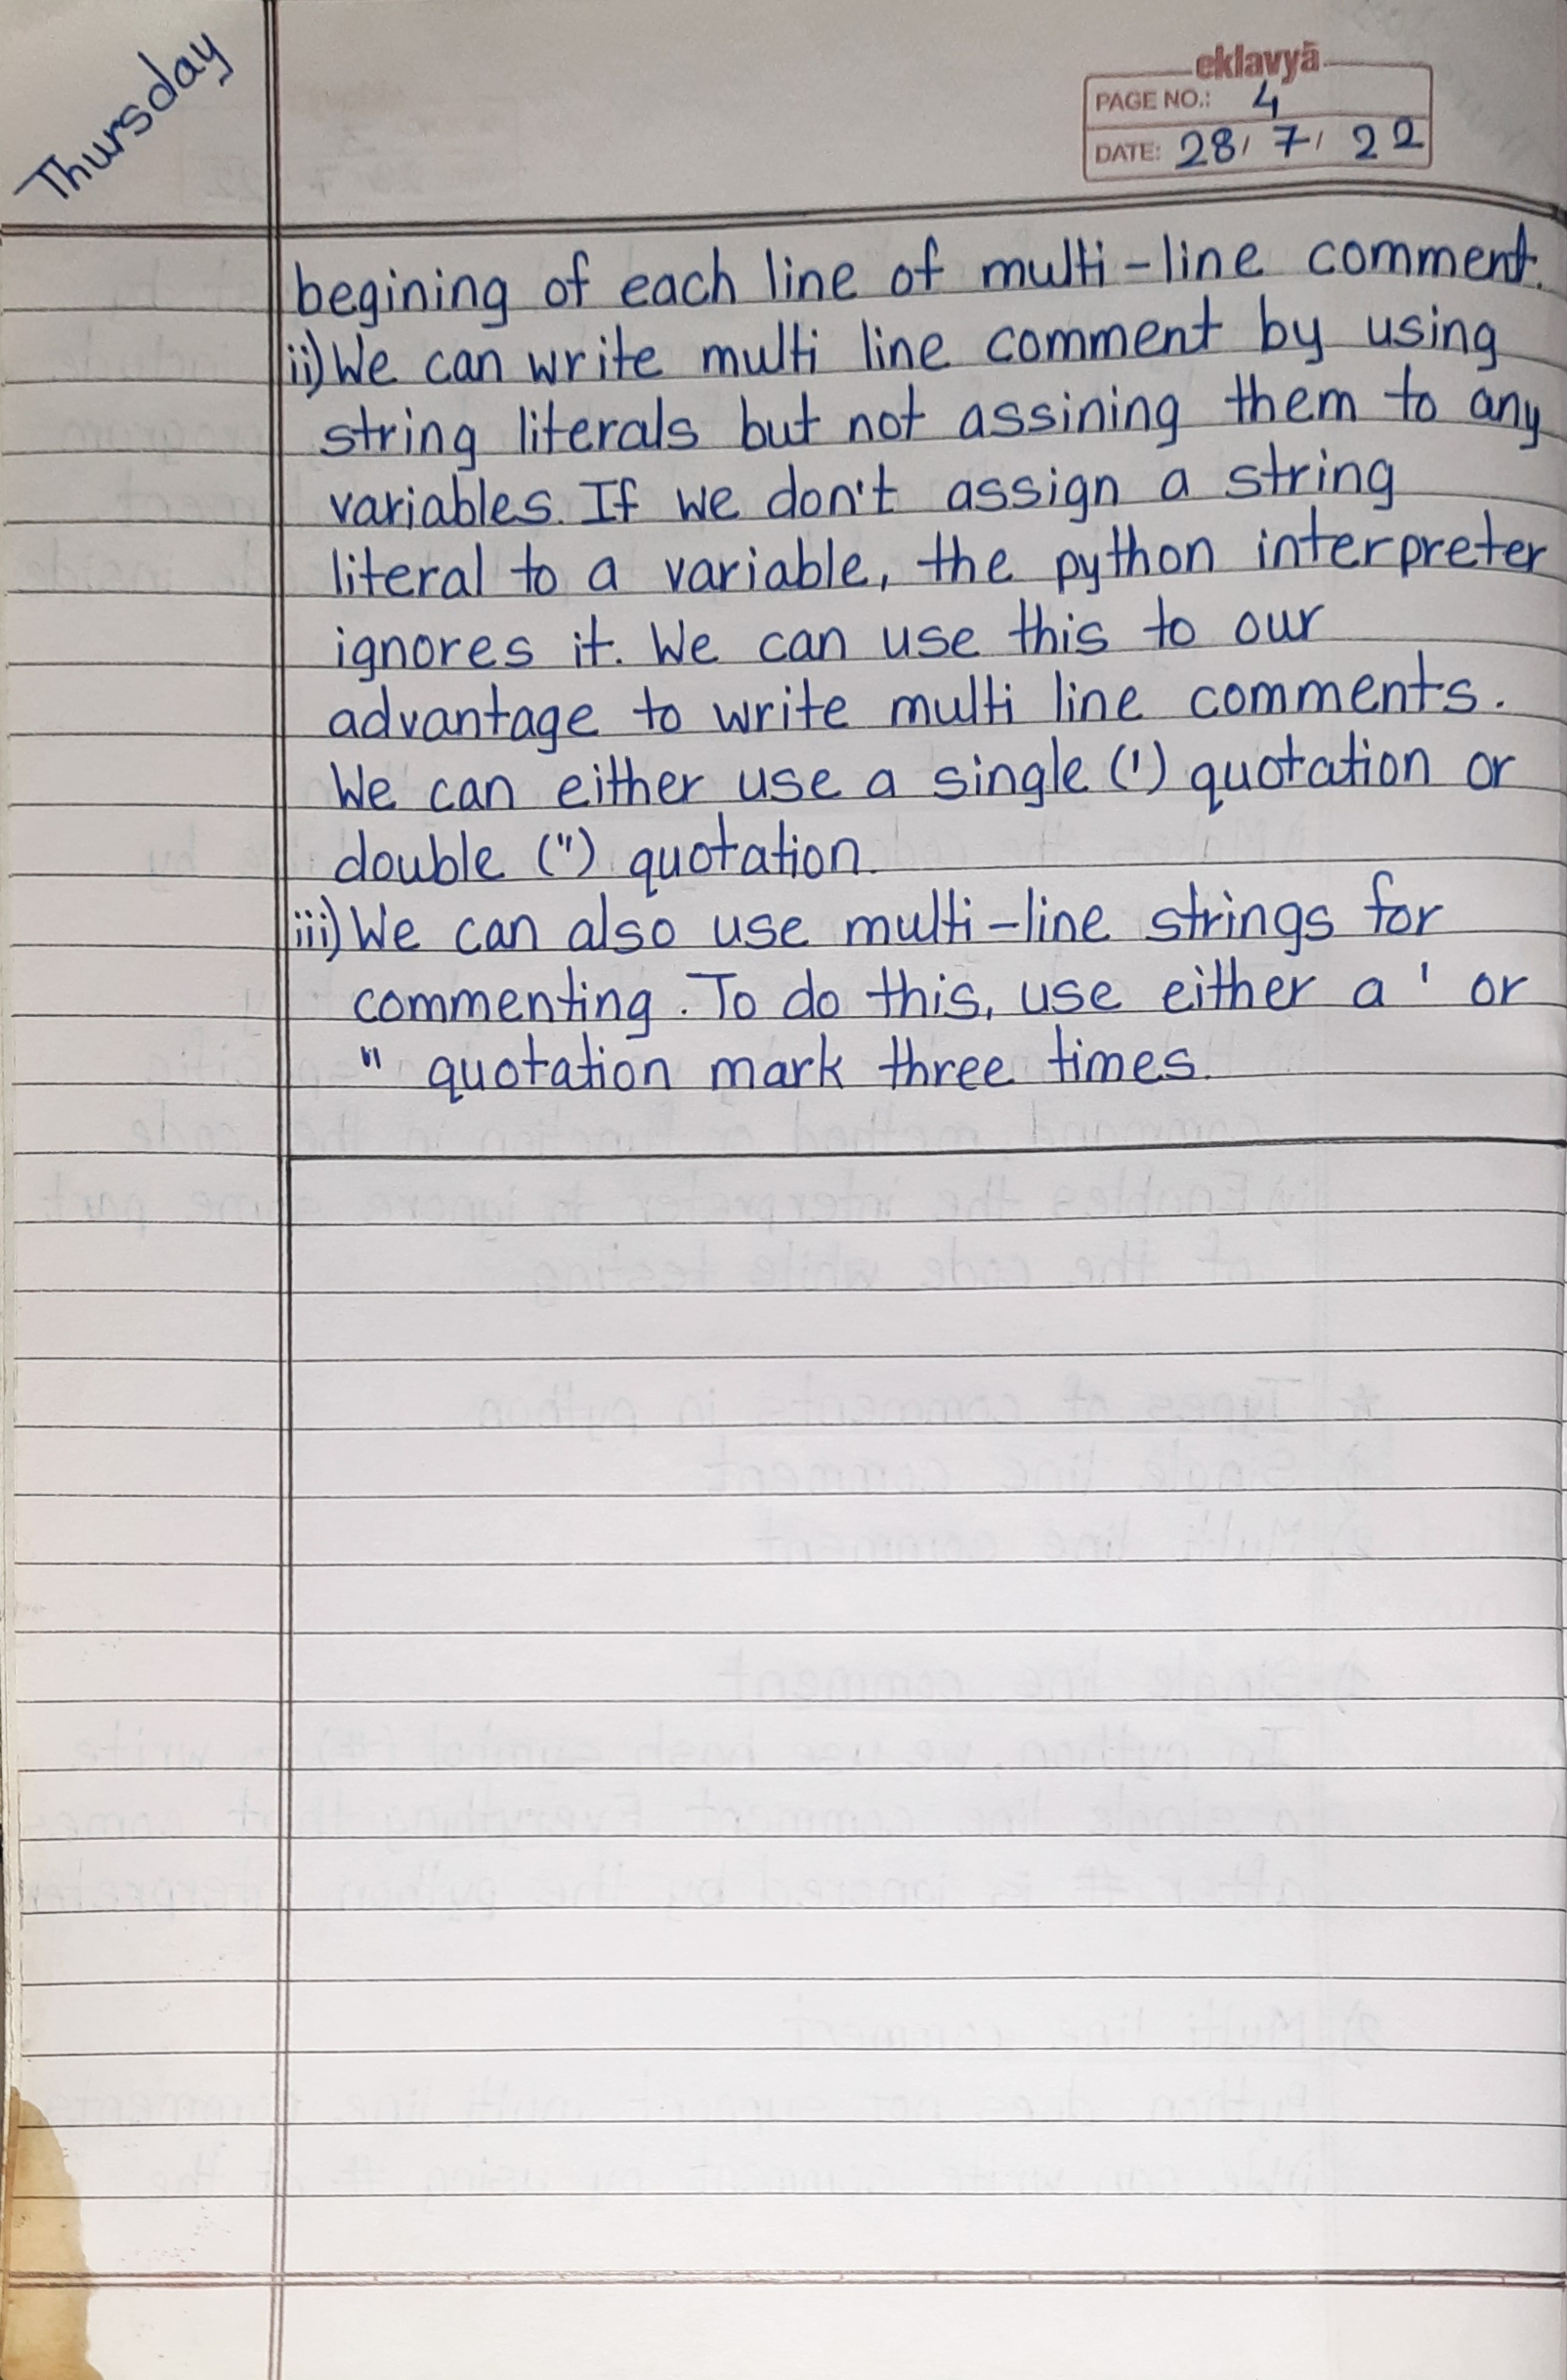 Thursday
eklavyā
PAGE NO.: 4
DATE: 28/ 7/ 22
begining of each line of multi-line comment.
ii) We can write multi line comment by using
string literals but not assining them to any
variables. If we don't assign a string
literal to a variable, the python interpreter
ignores it. We can use this to our
advantage to write multi line comments.
We can either use a single (') quotation or
double (") quotation.
iii) We can also use multi-line strings for
commenting. To do this, use either a ' or
" quotation mark three times.